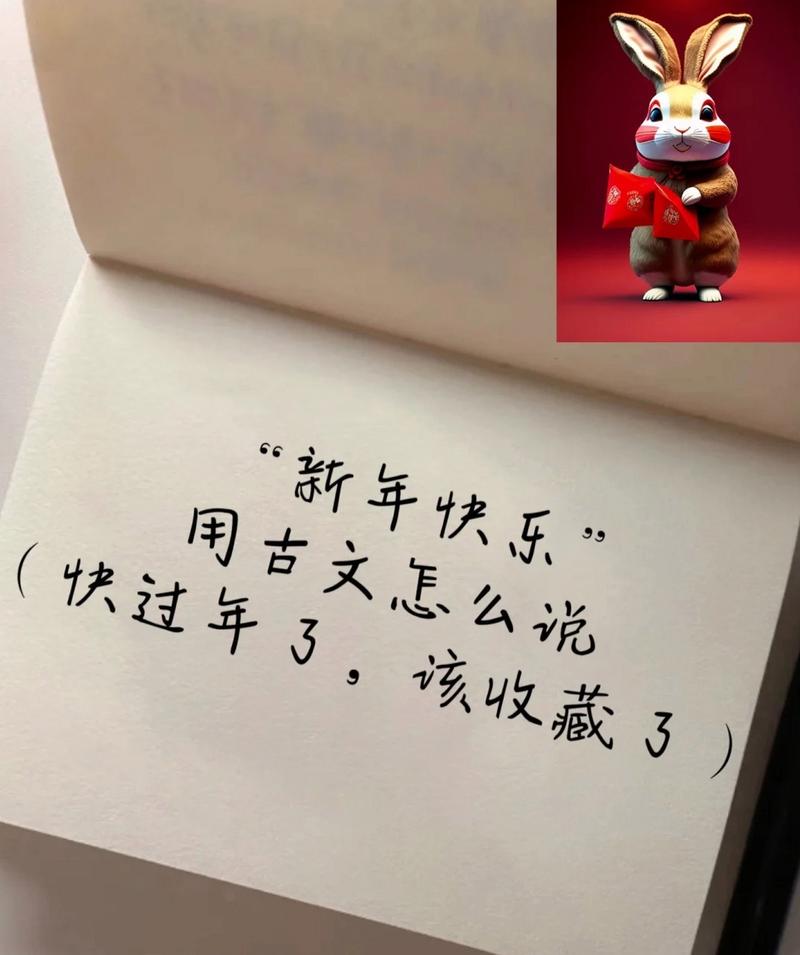 “新年快乐”
用古文怎么说
（快过年了，该收藏了）